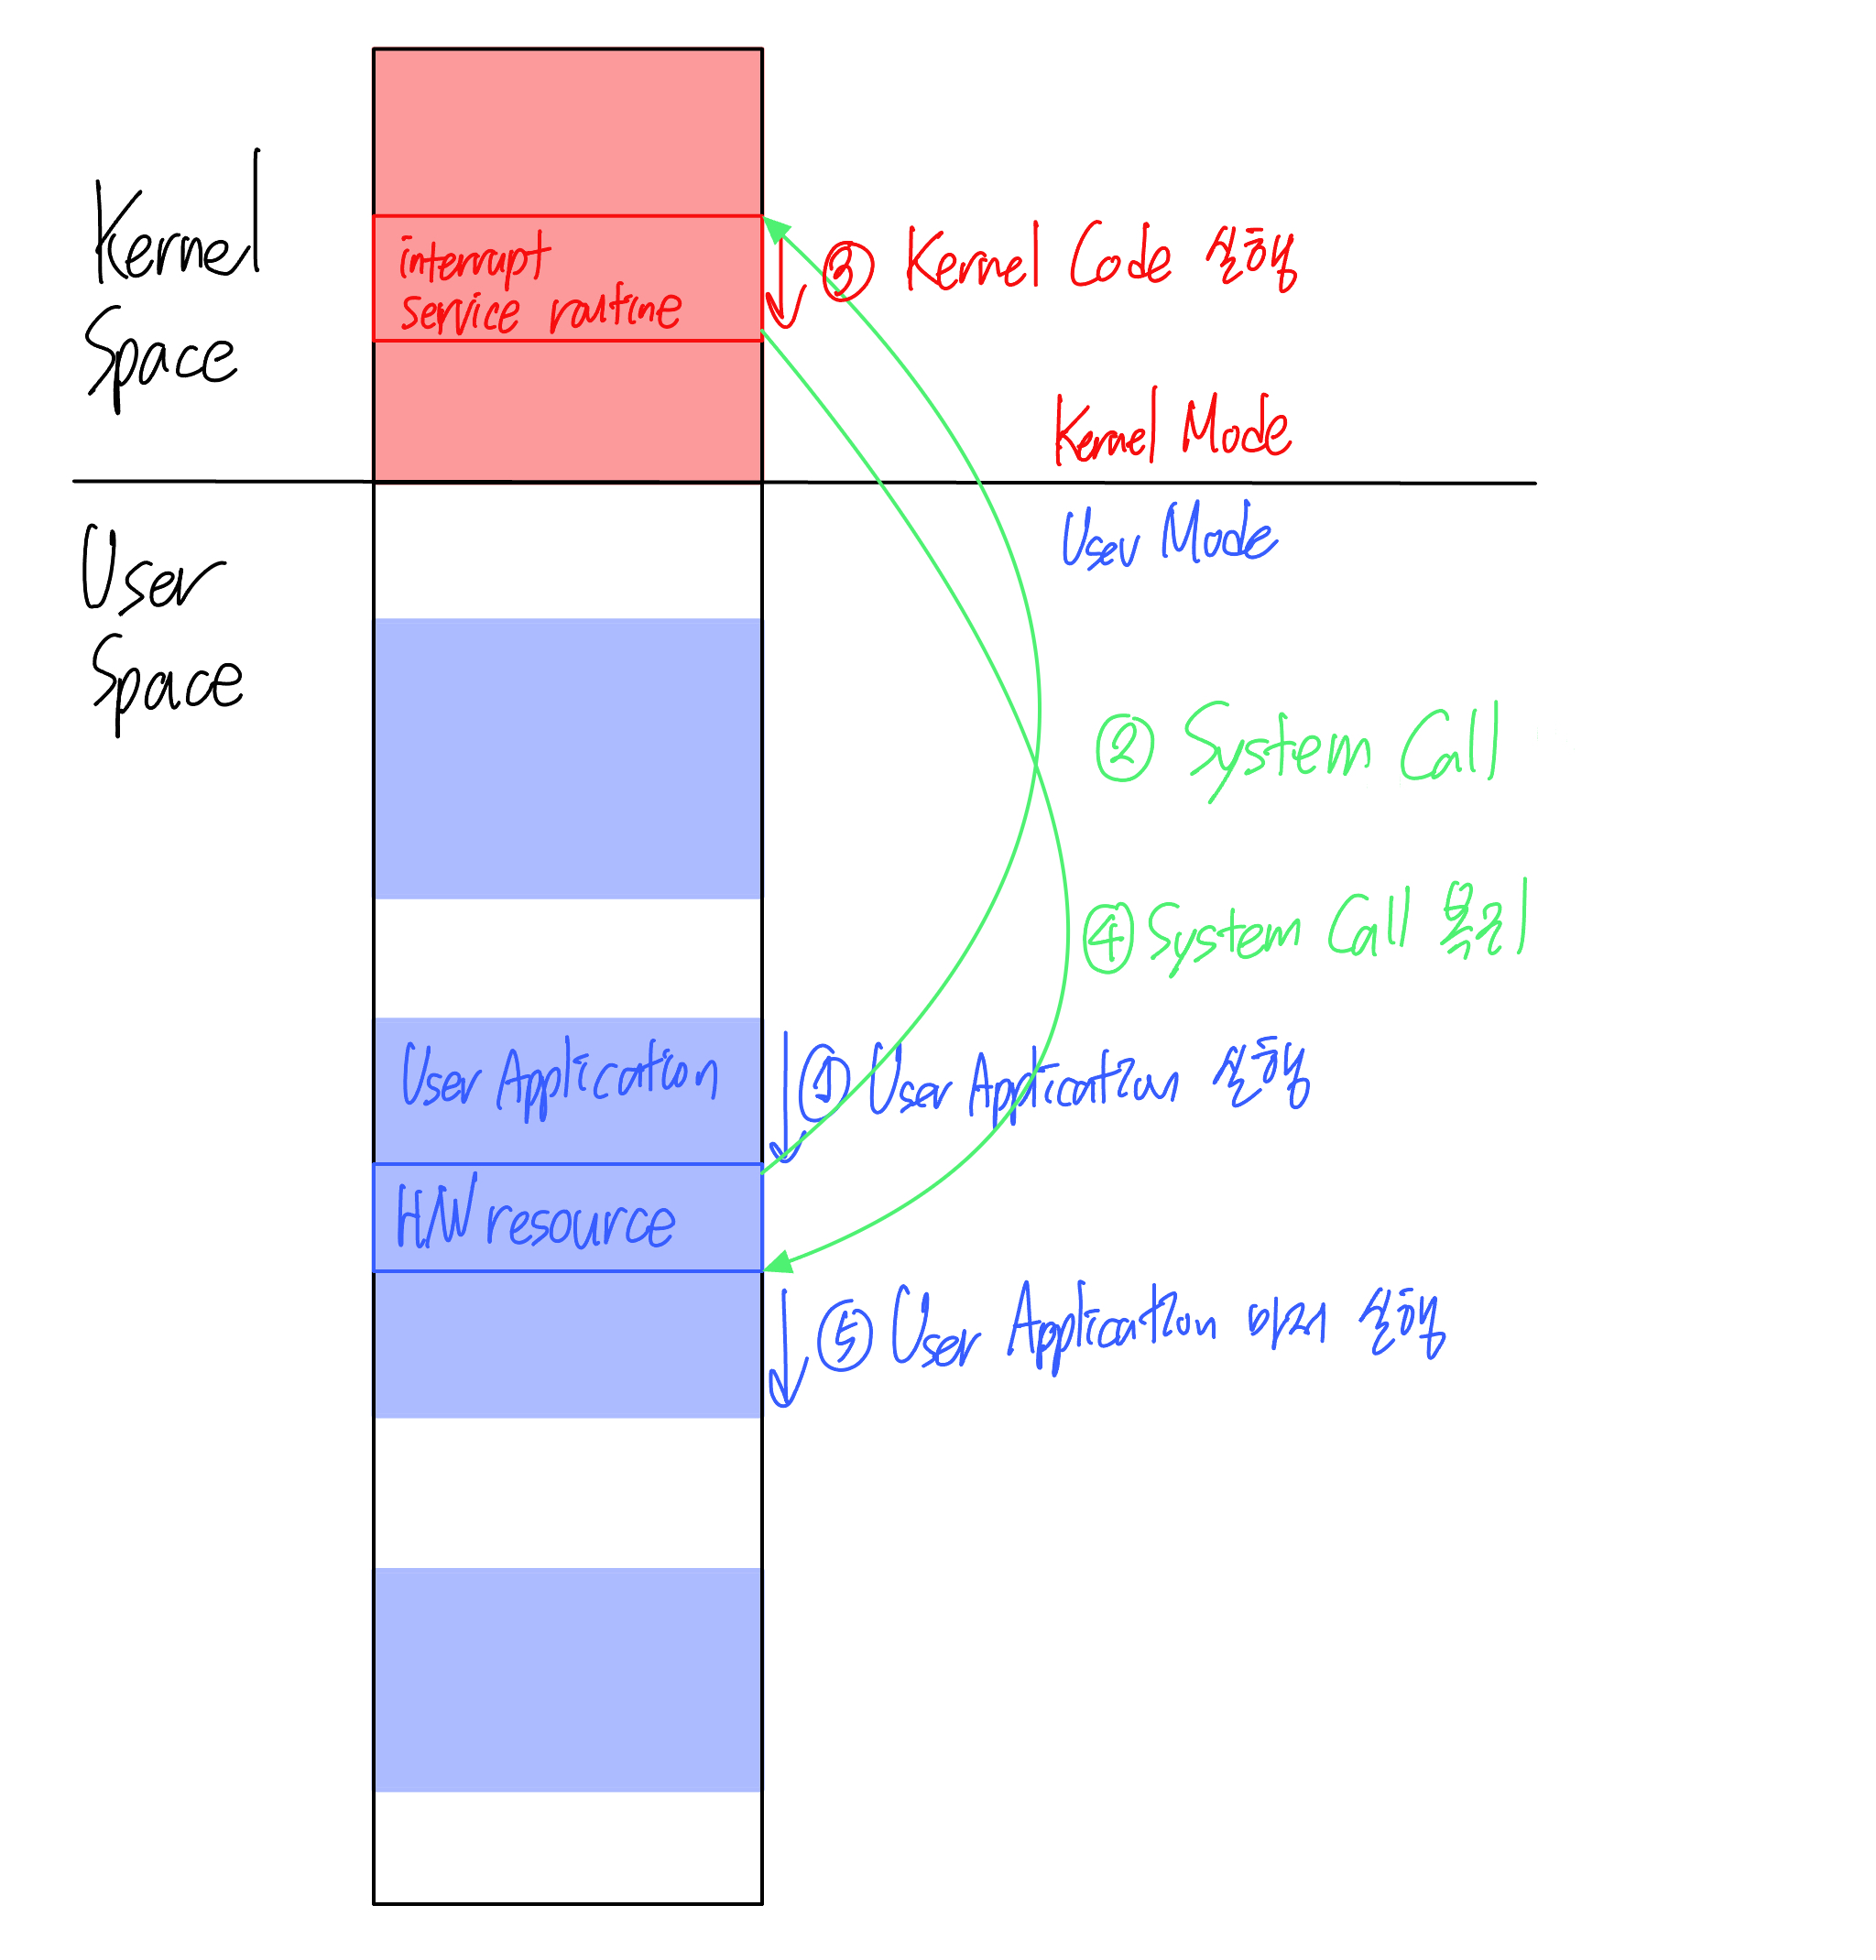 Kernel
Space
interrupt
service routine
③ Kernel Code 실행
Kernel Mode
User Mode
User
Space
② System Call
④ System Call 복귀
User Application
① User Application 실행
HW resource
⑤ User Application 마저 실행